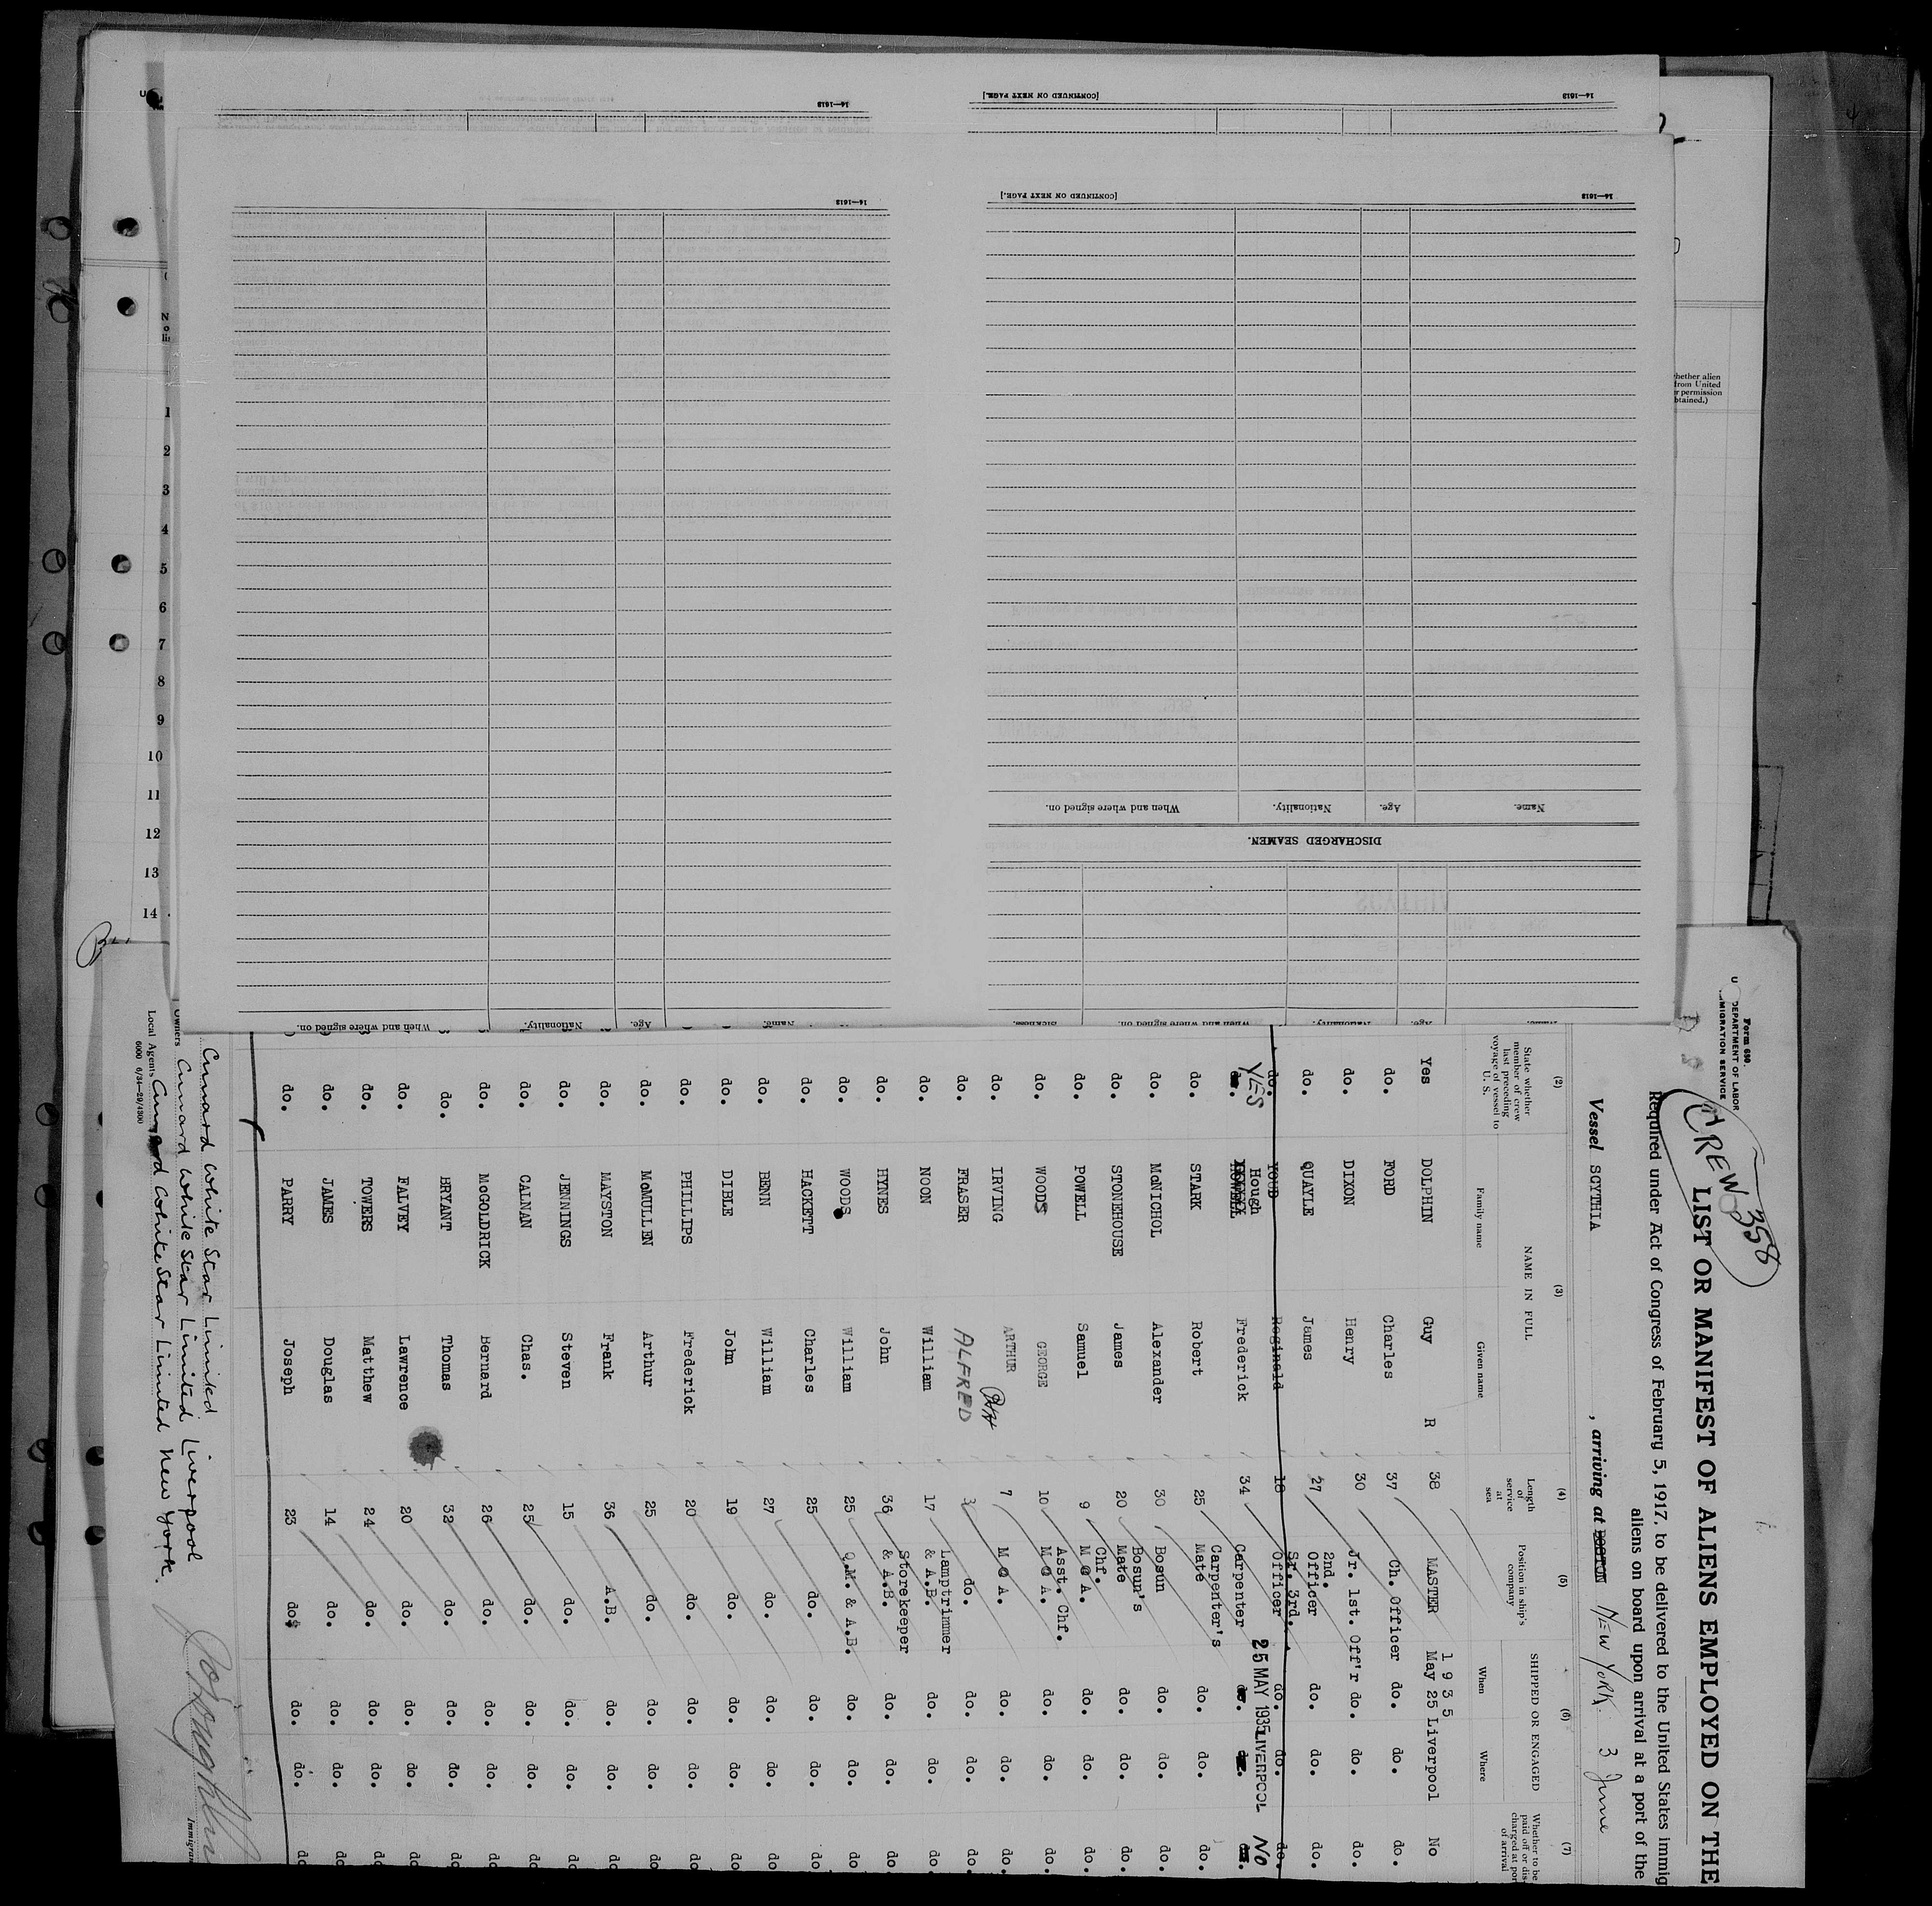 14—1613
[CONTINUED ON NEXT PAGE.]
14—1613
14—1613
[CONTINUED ON NEXT PAGE.]
14—1613
When and where signed on.
Nationality.
Age.
Name.
DISCHARGED SEAMEN.
Name.
Age.
Nationality.
When and where signed on.
Sickness.
When and where signed on.
Nationality.
Age.
Name.
1
2
3
4
5
6
7
8
9
10
11
12
13
14
Form 680
U DEPARTMENT OF LABOR
IMMIGRATION SERVICE
CREW 358
LIST OR MANIFEST OF ALIENS EMPLOYED ON THE
Required under Act of Congress of February 5, 1917, to be delivered to the United States immig
aliens on board upon arrival at a port of the
Vessel SCYTHIA , arriving at BOSTON NEW YORK 3 June
(2) (3) (4) (5) (6) (7)
State whether member of crew last preceding voyage of vessel to U. S.
NAME IN FULL
Family name Given name
Length of service at sea
Position in ship's company
SHIPPED OR ENGAGED
When Where
Whether to be paid off or discharged at port of arrival
1935
Yes DOLPHIN Guy R 38 MASTER May 25 Liverpool No
do. FORD Charles 37 Ch. Officer do. do. do.
do. DIXON Henry 30 Jr. 1st. Off'r do. do. do.
do. QUAYLE James 27 2nd. Officer do. do. do.
do. YOUD Reginald 18 Sr. 3rd. Officer do. do. do.
YES Hough Frederick 34 Carpenter 25 MAY 1935 LIVERPOOL NO
do. STARK Robert 25 Carpenter's Mate do. do. do.
do. McNICHOL Alexander 30 Bosun do. do. do.
do. STONEHOUSE James 20 Bosun's Mate do. do. do.
do. POWELL Samuel 9 Chf. M O A. do. do. do.
do. WOODS GEORGE 10 Asst. Chf. M O A. do. do. do.
do. IRVING ARTHUR 7 M O A. do. do. do.
do. FRASER ALFRED 3 do. do. do. do.
do. NOON William 17 Lamptrimmer & A.B. do. do. do.
do. HYNES John 36 Storekeeper & A.B. do. do. do.
do. WOODS William 25 Q.M. & A.B. do. do. do.
do. HACKETT Charles 25 do. do. do. do.
do. BENN William 27 do. do. do. do.
do. DIBLE John 19 do. do. do. do.
do. PHILLIPS Frederick 20 do. do. do. do.
do. McMULLEN Arthur 25 do. do. do. do.
do. MAYSTON Frank 36 A.B. do. do. do.
do. JENNINGS Steven 15 do. do. do. do.
do. CALNAN Chas. 25 do. do. do. do.
do. McGOLDRICK Bernard 26 do. do. do. do.
do. BRYANT Thomas 32 do. do. do. do.
do. FALVEY Lawrence 20 do. do. do. do.
do. TOWERS Matthew 24 do. do. do. do.
do. JAMES Douglas 14 do. do. do. do.
do. PARRY Joseph 23 do. do. do. do.
Cunard White Star Limited
Owners Cunard White Star Limited Liverpool
Local Agents Cunard White Star Limited New York.
6000 6/34—29/4300
Immigran
hether alien
from United
r permission
btained.)